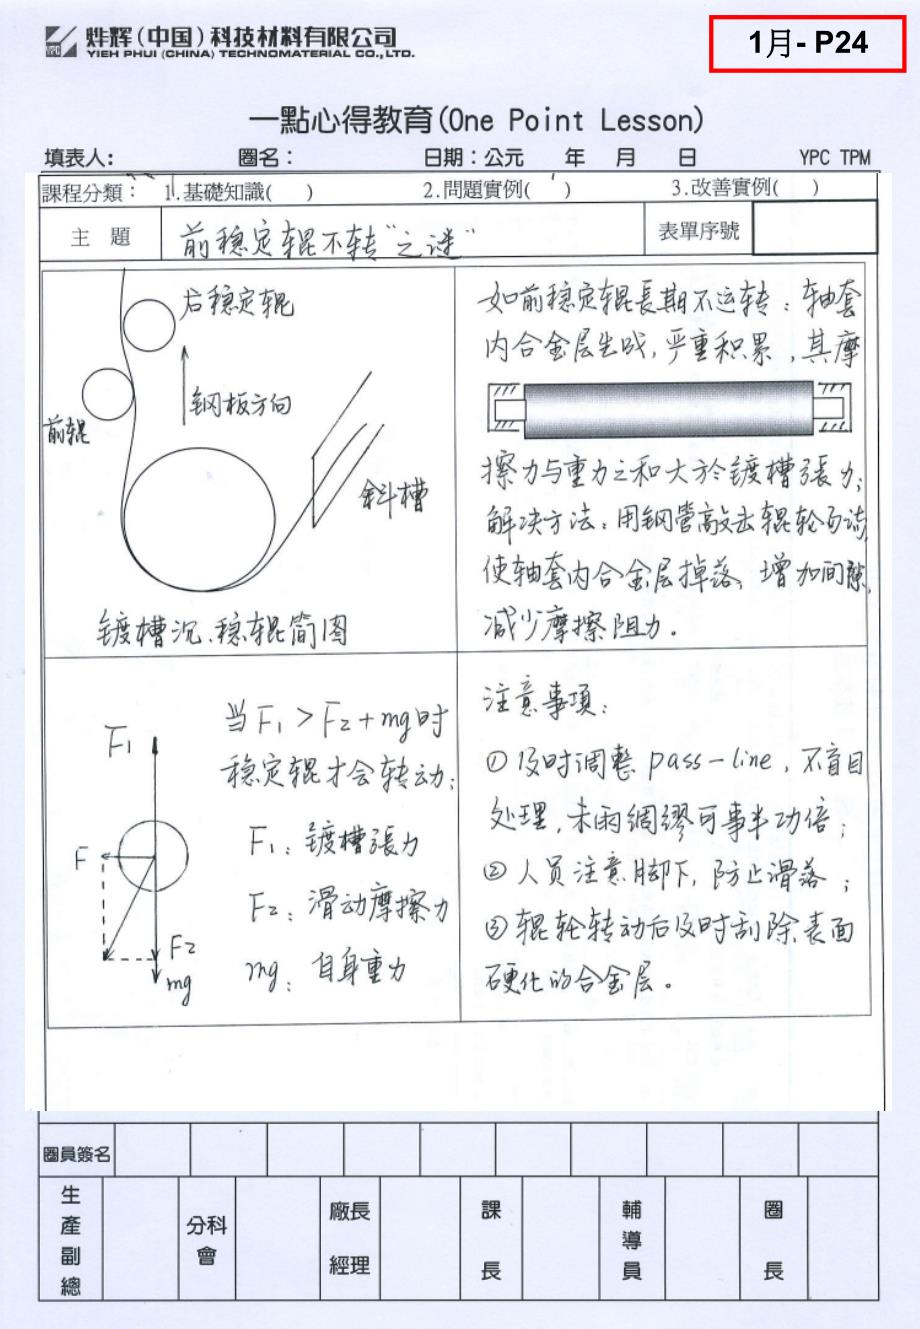 烨辉(中国)科技材料有限公司
YIEH PHUI (CHINA) TECHNOMATERIAL CO.,LTD.
1月- P24
一點心得教育(One Point Lesson)
填表人: 圈名: 日期:公元 年 月 日 YPC TPM
課程分類: 1.基礎知識( ) 2.問題實例( ) 3.改善實例( )
主 題 前稳定辊不转“之谜” 表單序號
后稳定辊
钢板方向
前辊
斜槽
镀槽沉、稳辊简图
如前稳定辊長期不运转:轴套
内合金层生成,严重积累,其摩
擦力与重力之和大於镀槽張力;
解决方法:用钢管敲击辊轮两端,
使轴套内合金层掉落、增加间隙,
减少摩擦阻力。
F1
F
F2
mg
当F1>F2+mg时
稳定辊才会转动;
F1:镀槽張力
F2:滑动摩擦力
mg:自身重力
注意事項:
①及时调整pass-line,不盲目
处理,未雨綢繆可事半功倍;
②人员注意脚下,防止滑落;
③辊轮转动后及时刮除表面
硬化的合金层。
圈員簽名
生產副總 分科會 廠長經理 課長 輔導員 圈長